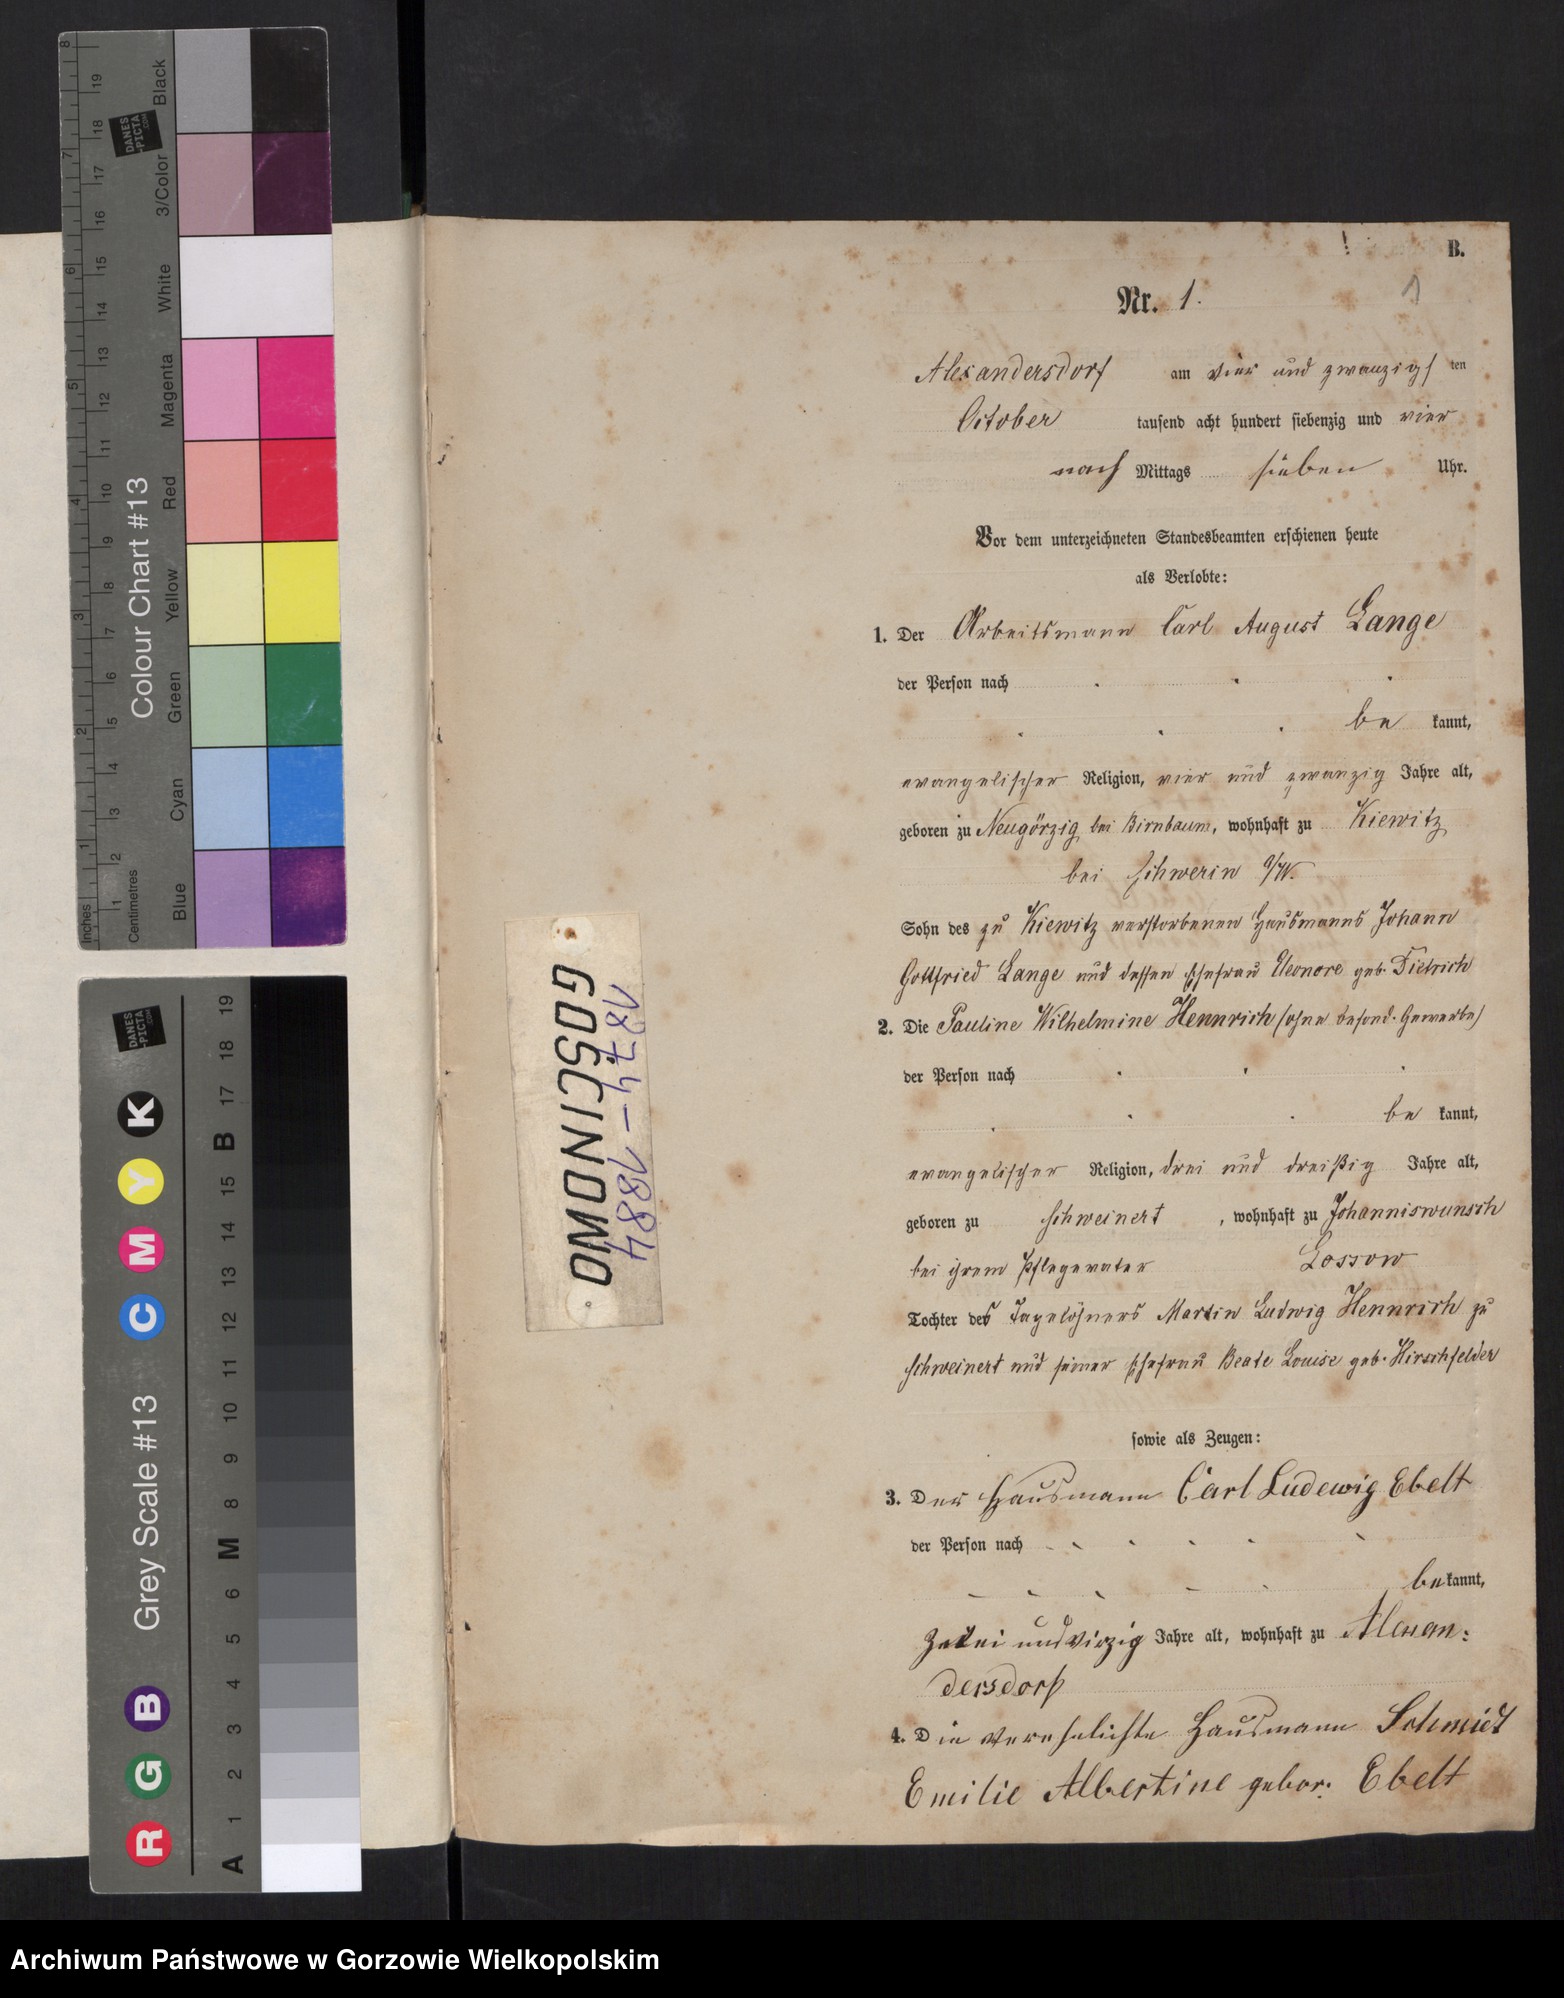 B.
Nr. 1.
1
Alexandersdorf am vier und zwanzigsten
October tausend acht hundert siebenzig und vier
nach Mittags sieben Uhr.
Vor dem unterzeichneten Standesbeamten erschienen heute
als Verlobte:
1. Der Arbeitsmann Carl August Lange
der Person nach
be kannt,
evangelischer Religion, vier und zwanzig Jahre alt,
geboren zu Neugörzig bei Birnbaum, wohnhaft zu Kiewitz
bei Schwerin a/W.
Sohn des zu Kiewitz verstorbenen Hausmanns Johann
Gottfried Lange und dessen Ehefrau Eleonore geb. Dietrich
2. Die Pauline Wilhelmine Hennrich (ohne besond. Gewerbe)
der Person nach
be kannt,
evangelischer Religion, drei und dreißig Jahre alt,
geboren zu Schweinert, wohnhaft zu Johanniswunsch
bei ihrem Pflegevater Lossow
Tochter des Tagelöhners Martin Ludwig Hennrich zu
Schweinert und seiner Ehefrau Beate Louise geb. Hirschfelder
sowie als Zeugen:
3. Der Hausmann Carl Ludewig Ebelt
der Person nach
bekannt,
Zwei und virzig Jahre alt, wohnhaft zu Alexan:
dersdorf
4. Die verehelichte Hausmann Schmidt
Emilie Albertine gebor: Ebelt
GOŚCINOWO
1874 - 1884
Colour Chart #13
Black
3/Color
White
Magenta
Red
Yellow
Green
Cyan
Blue
Inches 1 2 3 4 5 6 7 8
Centimetres 1 2 3 4 5 6 7 8 9 10 11 12 13 14 15 16 17 18 19
DANES
-PICTA
.COM
Grey Scale #13
R G B C M Y K
A 1 2 3 4 5 6 M 8 9 10 11 12 13 14 15 B 17 18 19
DANES
-PICTA
.COM
Archiwum Państwowe w Gorzowie Wielkopolskim